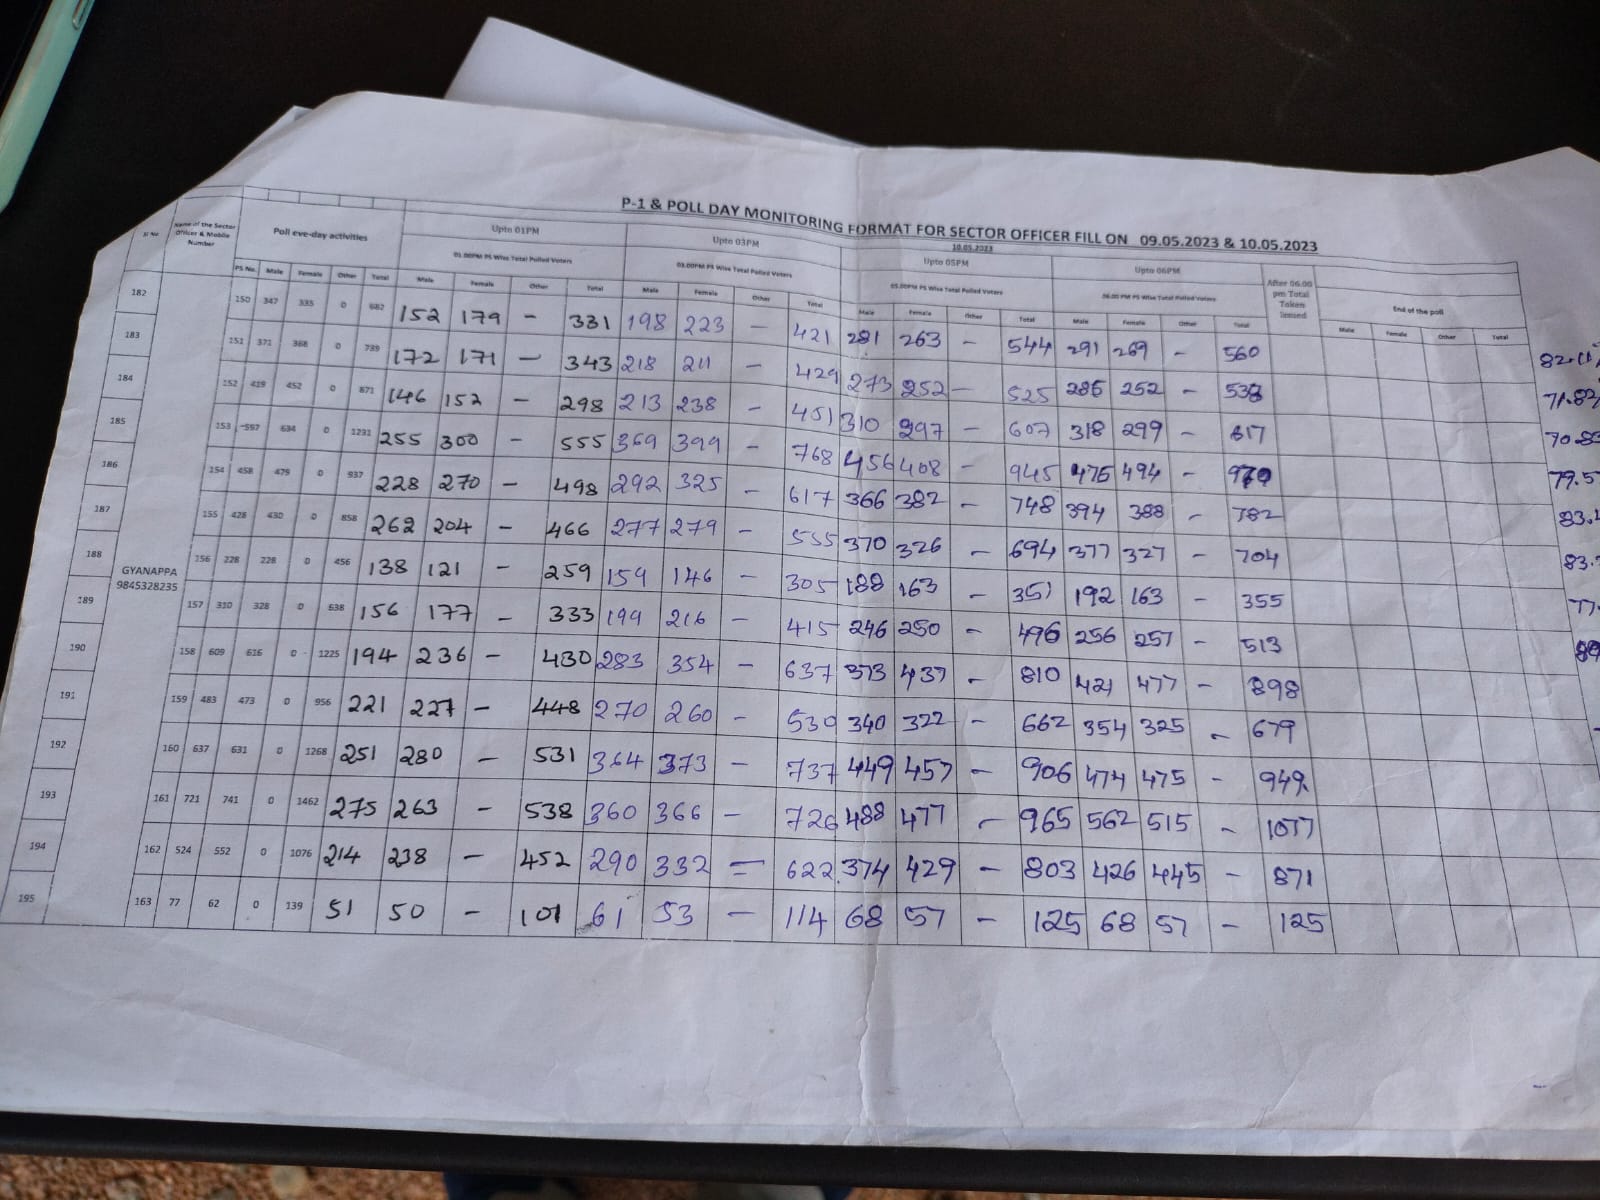 P-1 & POLL DAY MONITORING FORMAT FOR SECTOR OFFICER FILL ON 09.05.2023 & 10.05.2023
10.05.2023
Sl No Name of the Sector Officer & Mobile Number Poll eve-day activities Upto 01PM Upto 03PM Upto 05PM Upto 06PM After 06.00 pm Total Token Issued End of the poll
01.00PM PS Wise Total Polled Voters 03.00PM PS Wise Total Polled Voters 05.00PM PS Wise Total Polled Voters 06.00 PM PS Wise Total Polled Voters
PS No. Male Female Other Total Male Female Other Total Male Female Other Total Male Female Other Total Male Female Other Total Male Female Other Total
182 150 347 335 0 682 152 179 - 331 198 223 - 421 281 263 - 544 291 269 - 560
183 151 371 368 0 739 172 171 - 343 218 211 - 429 273 252 - 525 252 - 71.82
184 152 419 452 0 871 146 152 - 298 213 238 - 451 310 297 - 607 318 299 - 617
185 153 -597 634 0 1231 255 300 - 555 369 399 - 768 456 - 945 494 - 79.5
186 154 458 479 0 937 228 270 - 498 292 325 - 617 366 382 - 748 394 388 - 782
187 155 428 430 0 858 262 204 - 466 277 279 - 370 326 - 694 377 327 - 704
188 156 228 228 0 456 138 121 - 259 159 146 - 305 188 163 - 351 192 163 - 355
GYANAPPA
9845328235
189 157 310 328 0 638 156 177 - 333 199 216 - 415 246 250 - 496 256 257 - 513
190 158 609 616 0 1225 194 236 - 430 283 354 - 637 373 437 - 810 421 477 - 898
191 159 483 473 0 956 221 227 - 448 270 260 - 530 340 322 - 662 354 325 - 679
192 160 637 631 0 1268 251 280 - 531 364 373 - 737 449 457 - 906 474 475 - 949
193 161 721 741 0 1462 275 263 - 538 360 366 - 726 488 477 - 965 562 515 - 1077
194 162 524 552 0 1076 214 238 - 452 290 332 = 622 374 429 - 803 426 445 - 871
195 163 77 62 0 139 51 50 - 101 61 53 - 114 68 57 - 125 68 57 - 125